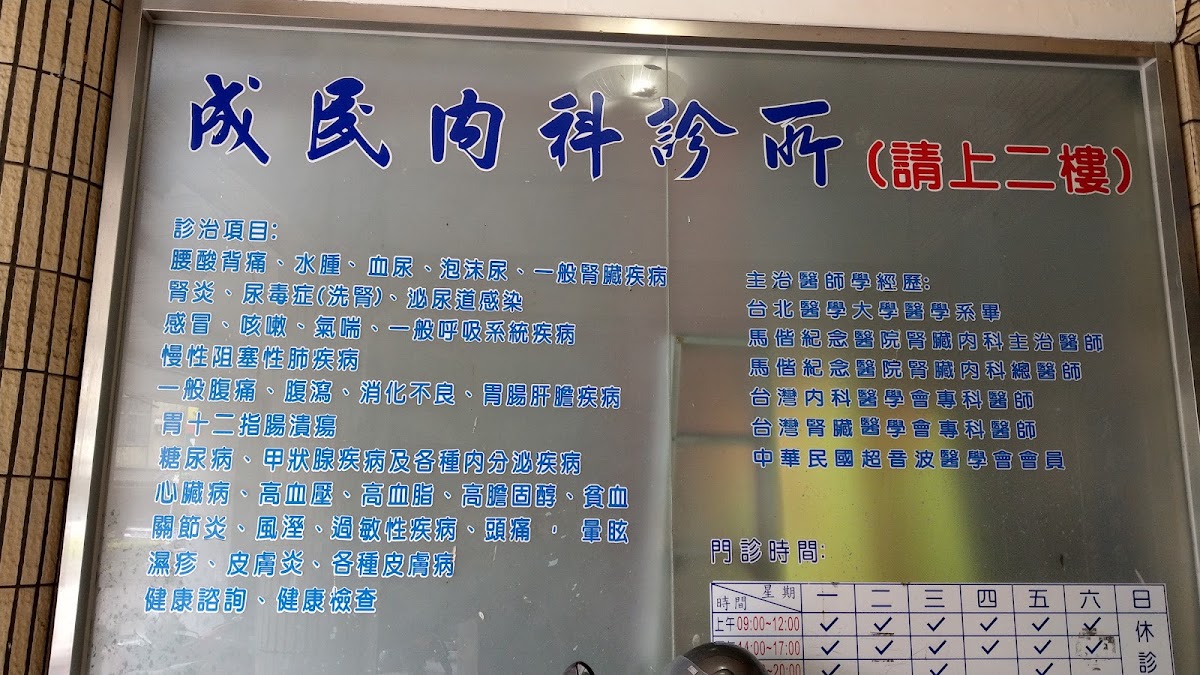 成民內科診所(請上二樓)
診治項目:
腰酸背痛、水腫、血尿、泡沫尿、一般腎臟疾病
腎炎、尿毒症(洗腎)、泌尿道感染
感冒、咳嗽、氣喘、一般呼吸系統疾病
慢性阻塞性肺疾病
一般腹痛、腹瀉、消化不良、胃腸肝膽疾病
胃十二指腸潰瘍
糖尿病、甲狀腺疾病及各種內分泌疾病
心臟病、高血壓、高血脂、高膽固醇、貧血
關節炎、風溼、過敏性疾病、頭痛，暈眩
濕疹、皮膚炎、各種皮膚病
健康諮詢、健康檢查
主治醫師學經歷:
台北醫學大學醫學系畢
馬偕紀念醫院腎臟內科主治醫師
馬偕紀念醫院腎臟內科總醫師
台灣內科醫學會專科醫師
台灣腎臟醫學會專科醫師
中華民國超音波醫學會會員
門診時間:
時間 星期 一 二 三 四 五 六 日
上午09:00~12:00 ✓ ✓ ✓ ✓ ✓ ✓ 休診
14:00~17:00 ✓ ✓ ✓ ✓ ✓ ✓
20:00 ✓ ✓ ✓